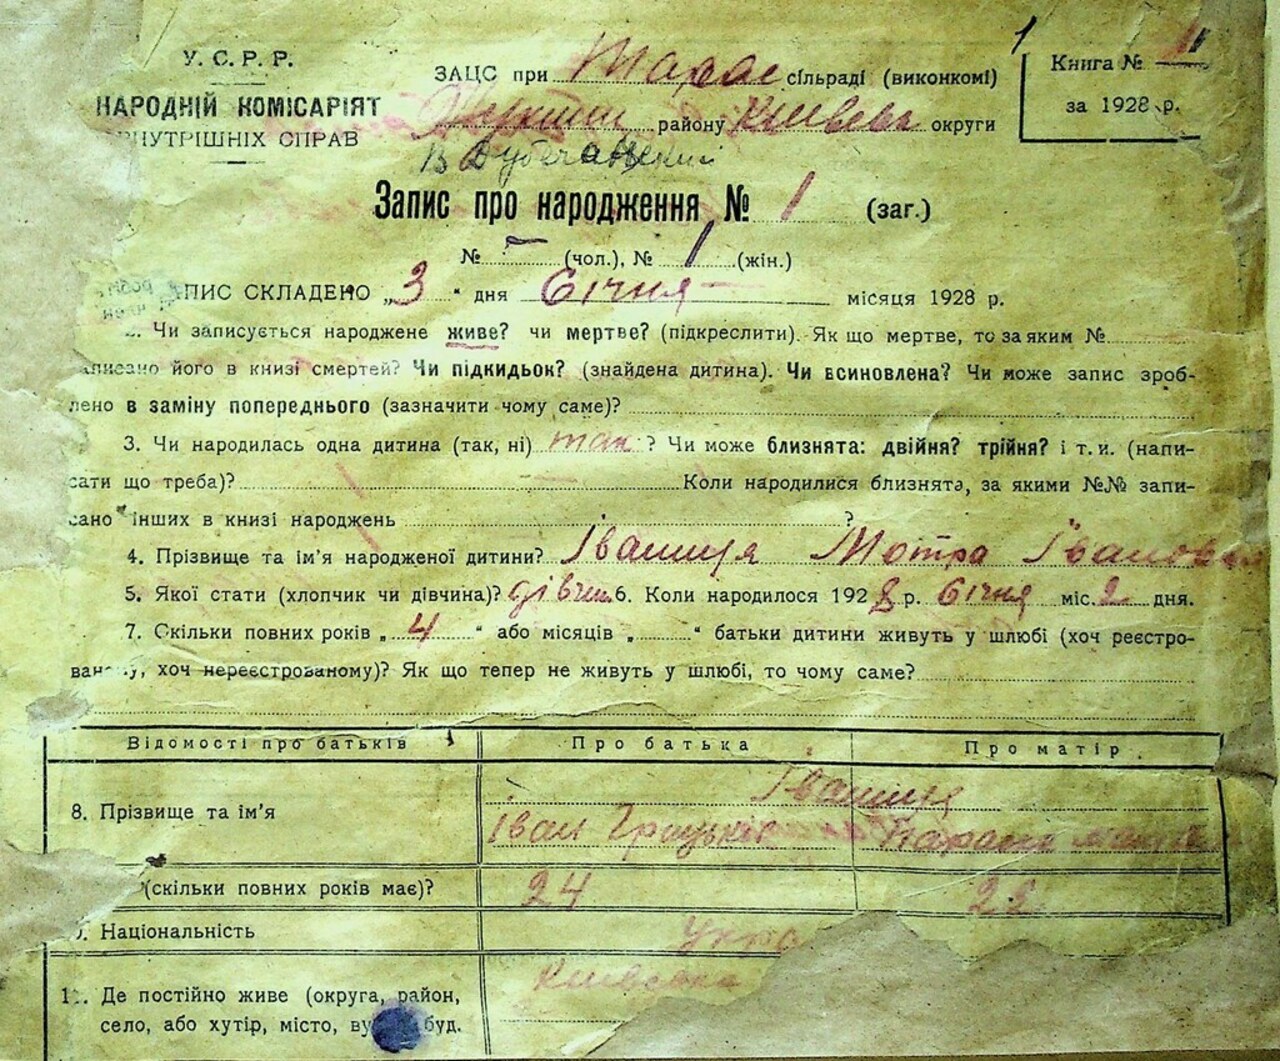 У. С. Р. Р.
НАРОДНІЙ КОМІСАРІЯТ
ВНУТРІШНІХ СПРАВ
ЗАЦС при Тарас сільраді (виконкомі)
району Київськ округи
Книга №
за 1928 р.
Запис про народження № 1 (заг.)
№ – (чол.), № 1 (жін.)
ПИС СКЛАДЕНО „3“ дня Січня місяця 1928 р.
Чи записується народжене живе? чи мертве? (підкреслити). Як що мертве, то за яким №
аписано його в книзі смертей? Чи підкидьок? (знайдена дитина). Чи всиновлена? Чи може запис зроб-
лено в заміну попереднього (зазначити чому саме)?
3. Чи народилась одна дитина (так, ні) так ? Чи може близнята: двійня? трійня? і т. и. (напи-
сати що треба)? Коли народилися близнята, за якими №№ запи-
сано інших в книзі народжень ?
4. Прізвище та ім'я народженої дитини? Івашиця Мотра Івановна
5. Якої стати (хлопчик чи дівчина)? дівчин. 6. Коли народилося 1928 р. Січня міс. 2 дня.
7. Скільки повних років „4“ або місяців „ “ батьки дитини живуть у шлюбі (хоч реєстро-
ван у, хоч нереєстрованому)? Як що тепер не живуть у шлюбі, то чому саме?
Відомості про батьків Про батька Про матір
8. Прізвище та ім'я Івашиця
Іван Грицьків
(скільки повних років має)? 24
Національність Укра
11. Де постійно живе (округа, район, Київська
село, або хутір, місто, ву буд.